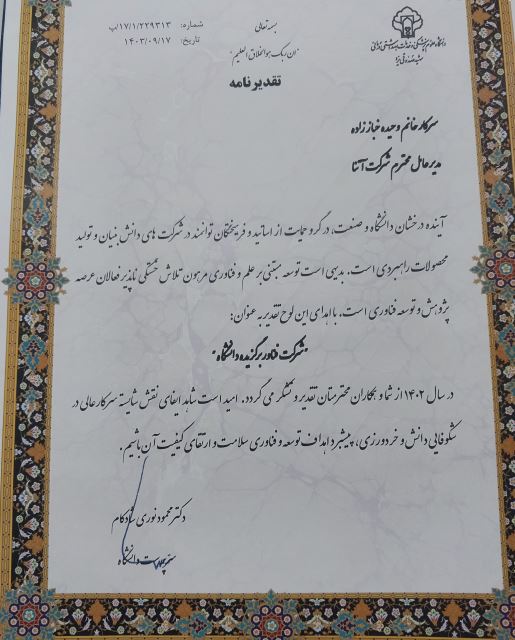 دانشگاه علوم پزشکی و خدمات بهداشتی درمانی
شهید صدوقی یزد
بسمه تعالی
"ان ربک هوالخلاق العلیم"
شماره: ۱۷/۱/۲۲۹۳۱۳/پ
تاریخ: ۱۴۰۳/۰۹/۱۷
تقدیرنامه
سرکار خانم وحیده خبازراده
مدیرعامل محترم شرکت آتنا
آینده درخشان دانشگاه و صنعت، در گرو حمایت از اساتید و فریختگان توانمند در شرکت های دانش بنیان و تولید
محصولات راهبردی است. بدیهی است توسعه مبتنی بر علم و فناوری مرهون تلاش خستگی ناپذیر فعالان عرصه
پژوهش و توسعه فناوری است. با اهدای این لوح تقدیر به عنوان:
"شرکت فناور برگزیده دانشگاه"
در سال ۱۴۰۲ از شما و همکاران محترمتان تقدیر و تشکر می گردد. امید است شاهد ایفای نقش شایسته سرکارعالی در
شکوفایی دانش و خردورزی، پیشبرد اهداف توسعه و فناوری سلامت و ارتقای کیفیت آن باشیم.
دکتر محمود نوری شادکام
سرپرست دانشگاه